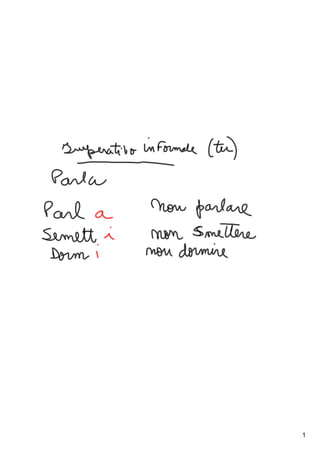 Imperativo informale (tu)
Parla
Parl a non parlare
Semett i non smettere
Dorm i non dormire
1